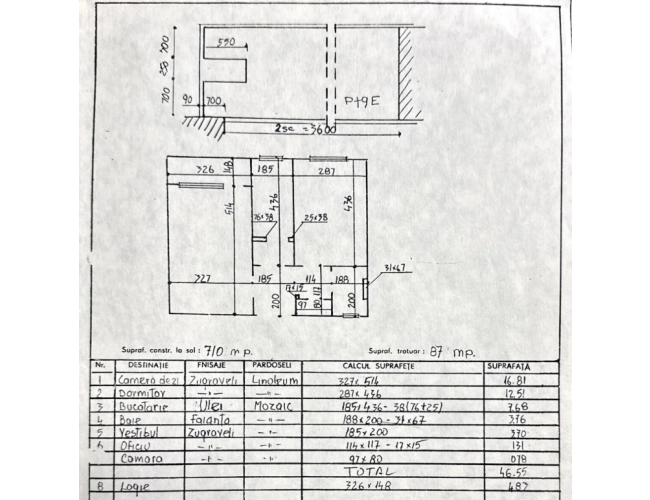 550
700
250
700
90 700
P+9E
2sc = 3600
326 148 185 287
514 436 436
76×38 25×38
31×47
327 185 114 188
17×15
200 97 80 117 200
Supraf. constr. la sol : 710 mp. Supraf. trotuar : 87 mp.
Nr. DESTINAȚIE FNISAJE PARDOSELI CALCUL SUPRAFEȚE SUPRAFAȚĂ
1 Camera de zi Zugraveli Linoleum 327× 514 16.81
2 Dormitor -"- -"- 287× 436 12.51
3 Bucatarie Ulei Mozaic 185×436 - 38(76+25) 7.68
4 Baie Faianta -"- 188×200 - 31×67 3.76
5 Vestibul Zugraveli -"- 185×200 3.70
6 Oficiu -"- -"- 114×117 - 17×15 1.31
Camara -"- -"- 97×80 0.78
TOTAL 46.55
8 Logie 326×148 4.82